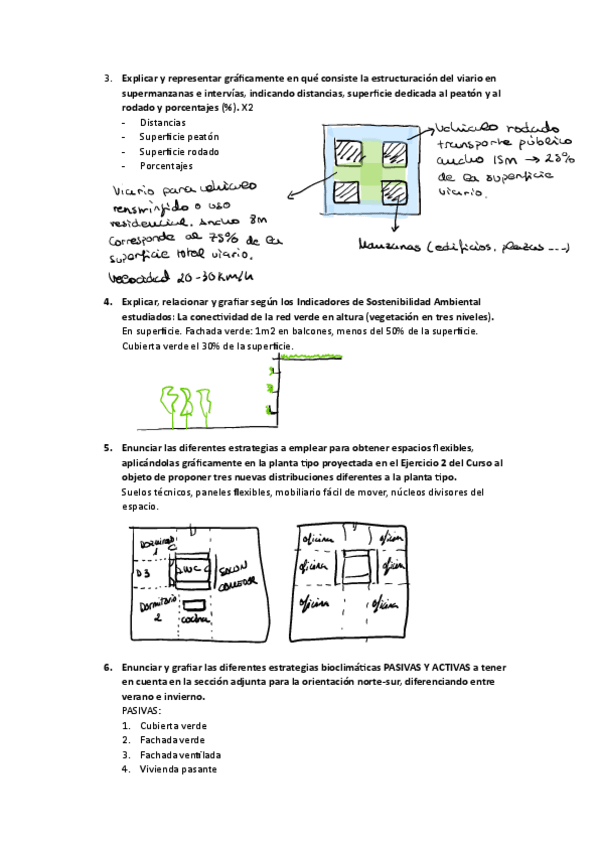 3. Explicar y representar gráficamente en qué consiste la estructuración del viario en
supermanzanas e intervías, indicando distancias, superficie dedicada al peatón y al
rodado y porcentajes (%). X2
- Distancias
- Superficie peatón
- Superficie rodado
- Porcentajes
Vehículo rodado
transporte público
ancho 15m → 25%
de la superficie
viario.
Viario para vehículo
o uso
residencial. Ancho 8m
Corresponde al 75% de la
superficie total viario.
Velocidad 20-30Km/h
Manzanas (edificios, plazas ---)
4. Explicar, relacionar y grafiar según los Indicadores de Sostenibilidad Ambiental
estudiados: La conectividad de la red verde en altura (vegetación en tres niveles).
En superficie. Fachada verde: 1m2 en balcones, menos del 50% de la superficie.
Cubierta verde el 30% de la superficie.
5. Enunciar las diferentes estrategias a emplear para obtener espacios flexibles,
aplicándolas gráficamente en la planta tipo proyectada en el Ejercicio 2 del Curso al
objeto de proponer tres nuevas distribuciones diferentes a la planta tipo.
Suelos técnicos, paneles flexibles, mobiliario fácil de mover, núcleos divisores del
espacio.
1
D3
WC
SALON
COMEDOR
Dormitorio
2
cocina
oficina
oficina
oficina
oficina
oficina
oficina
6. Enunciar y grafiar las diferentes estrategias bioclimáticas PASIVAS Y ACTIVAS a tener
en cuenta en la sección adjunta para la orientación norte-sur, diferenciando entre
verano e invierno.
PASIVAS:
1. Cubierta verde
2. Fachada verde
3. Fachada ventilada
4. Vivienda pasante